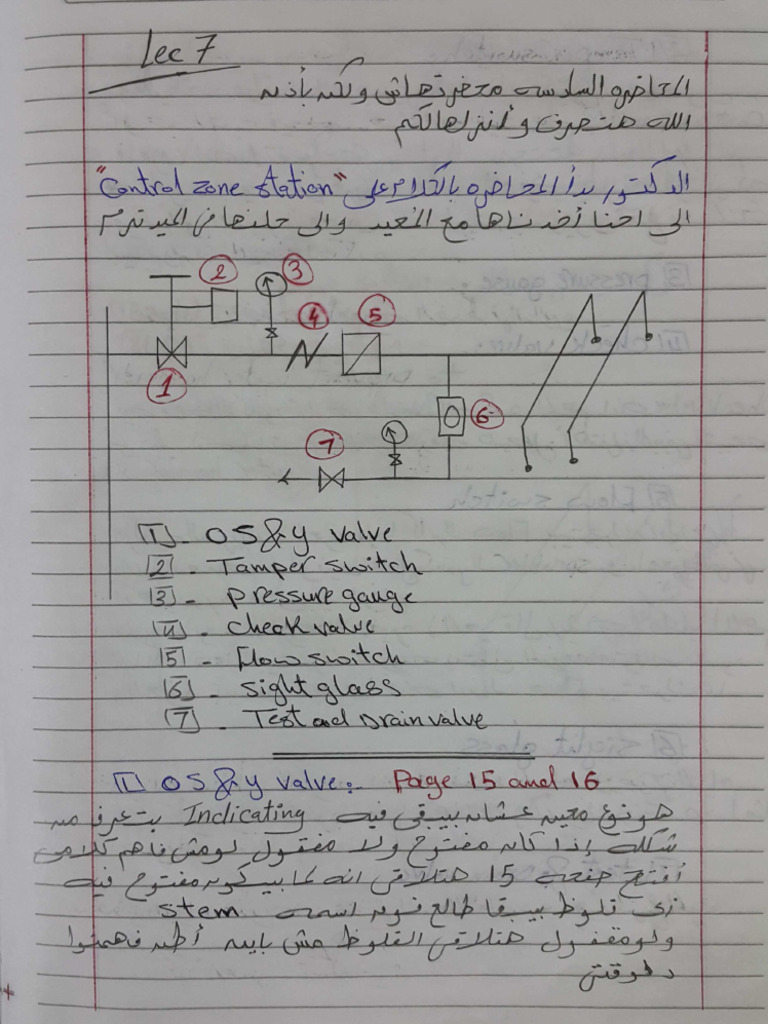 Lec 7
المحاضره السادسه محضرتهاش ولكن بأذن
الله هتصرف وأنزلهالكم
الدكتور بدأ المحاضره بالكلام على "Control zone station"
الى احنا أخدناها مع المعيد والى حلناها فى الميدتيرم
2
3
4
5
1
6
7
1 - OS&y valve
2 - Tamper switch
3 - pressure gauge
4 - check valve
5 - Flow switch
6 - sight glass
7 - Test and Drain valve
1 OS&y valve: Page 15 and 16
هو نوع معين عشان بيبقى فيه Indicating بتعرف من
شكله إذا كان مفتوح ولا مقفول لو مش فاهم كلامى
أفتح صفحه 15 هتلاقى انه لما بيكون مفتوح فيه
زى قلوظ بيبقا طالع فوق اسمه stem
ولو مقفول هتلاقى القلوظ مش باين أظن فاهمتوا
دلوقتى